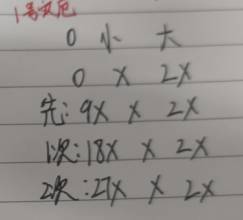 1号双厄
0 小 大
0 X 2X
先: 9X X 2X
1次: 18X X 2X
2次: 27X X 2X